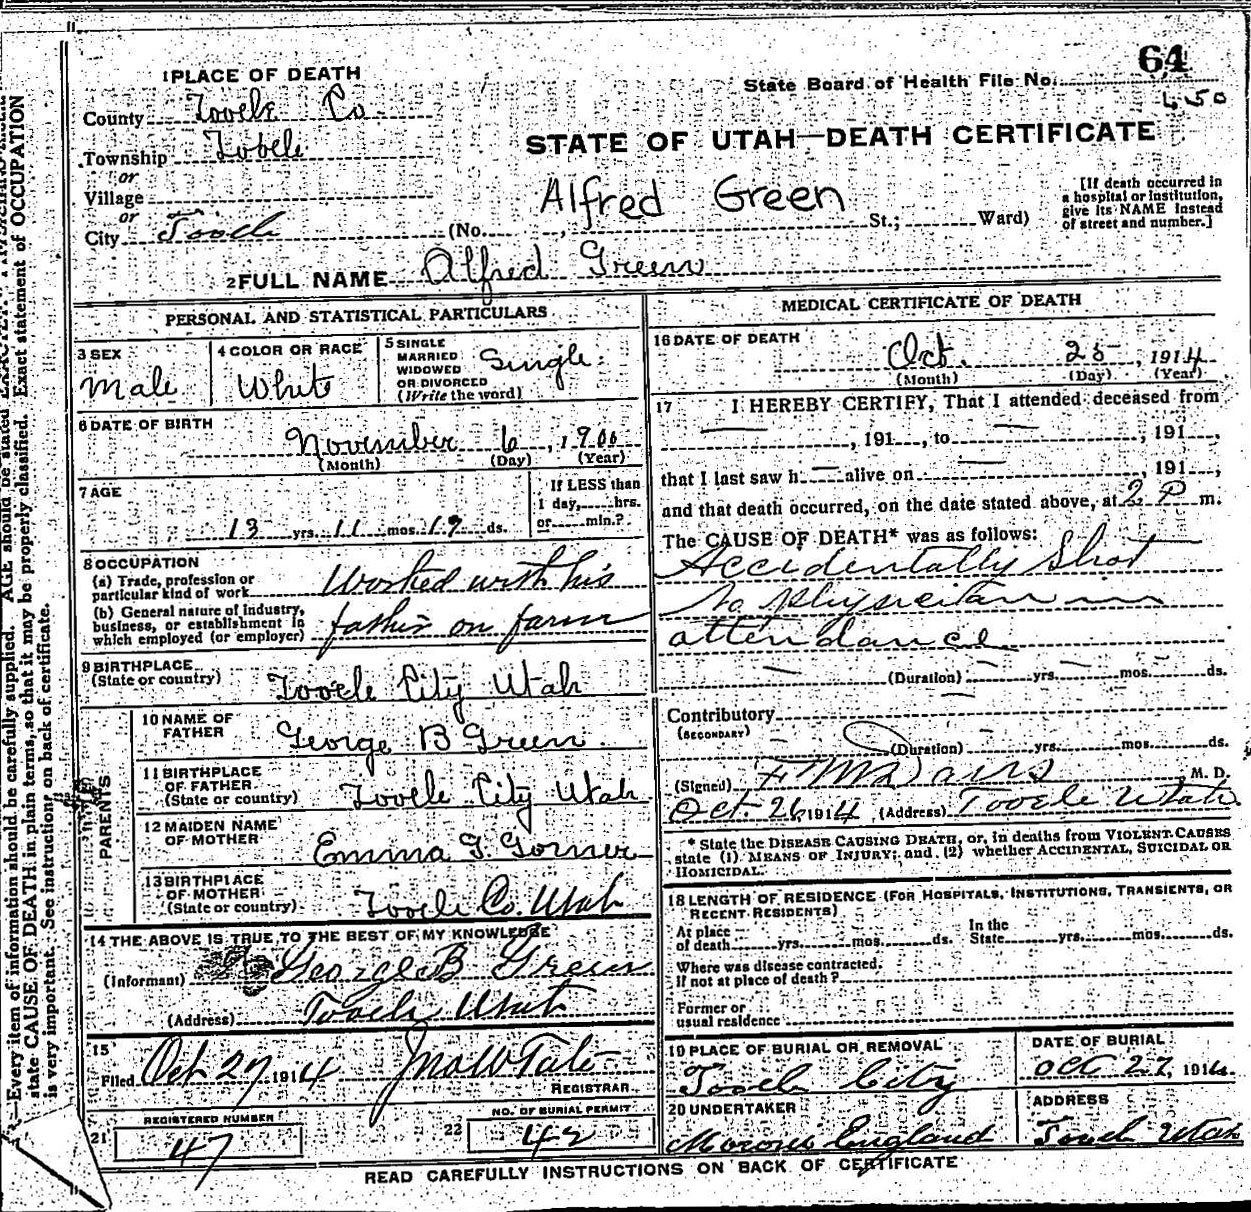 64
State Board of Health File No.
450
1 PLACE OF DEATH
County Tooele Co.
Township Tooele
or
Village
or
City Tooele
STATE OF UTAH—DEATH CERTIFICATE
Alfred Green
(No. , St.; Ward)
[If death occurred in
a hospital or institution,
give its NAME instead
of street and number.]
2 FULL NAME Alfred Green
PERSONAL AND STATISTICAL PARTICULARS
3 SEX
Male
4 COLOR OR RACE
White
5 SINGLE
MARRIED
WIDOWED
OR DIVORCED
(Write the word)
Single
6 DATE OF BIRTH
November 6, 1900
(Month) (Day) (Year)
7 AGE
13 yrs. 11 mos. 19 ds.
If LESS than
1 day, hrs.
or min.?
8 OCCUPATION
(a) Trade, profession or
particular kind of work
Worked with his
(b) General nature of industry,
business, or establishment in
which employed (or employer)
father on farm
9 BIRTHPLACE
(State or country)
Tooele City Utah
PARENTS
10 NAME OF
FATHER
George B Green
11 BIRTHPLACE
OF FATHER
(State or country)
Tooele City Utah
12 MAIDEN NAME
OF MOTHER
Emma G.
13 BIRTHPLACE
OF MOTHER
(State or country)
Tooele Co. Utah
14 THE ABOVE IS TRUE TO THE BEST OF MY KNOWLEDGE
(Informant) George B Green
(Address) Tooele Utah
15
Filed Oct 27 1914 Jno W Tate
REGISTRAR
REGISTERED NUMBER
21 47
NO. OF BURIAL PERMIT
22 42
MEDICAL CERTIFICATE OF DEATH
16 DATE OF DEATH
Oct. 25, 1914
(Month) (Day) (Year)
17 I HEREBY CERTIFY, That I attended deceased from
, 191 , to , 191 ,
that I last saw h alive on , 191 ,
and that death occurred, on the date stated above, at 2 P m.
The CAUSE OF DEATH* was as follows:
Accidentally Shot
No physician in
attendance
(Duration) yrs. mos. ds.
Contributory
(SECONDARY)
(Duration) yrs. mos. ds.
(Signed) F M Davis, M. D.
Oct. 26 1914 (Address) Tooele Utah
* State the DISEASE CAUSING DEATH, or, in deaths from VIOLENT CAUSES
state (1) MEANS OF INJURY; and (2) whether ACCIDENTAL, SUICIDAL OR
HOMICIDAL.
18 LENGTH OF RESIDENCE (FOR HOSPITALS, INSTITUTIONS, TRANSIENTS, OR
RECENT RESIDENTS)
At place
of death yrs. mos. ds.
In the
State yrs. mos. ds.
Where was disease contracted,
If not at place of death?
Former or
usual residence
19 PLACE OF BURIAL OR REMOVAL
Tooele City
DATE OF BURIAL
Oct 27, 1914
20 UNDERTAKER
England
ADDRESS
Tooele Utah
READ CAREFULLY INSTRUCTIONS ON BACK OF CERTIFICATE
—Every item of information should be carefully supplied. AGE should be stated
state CAUSE OF DEATH in plain terms, so that it may be properly classified. Exact statement of OCCUPATION
is very important. See instructions on back of certificate.